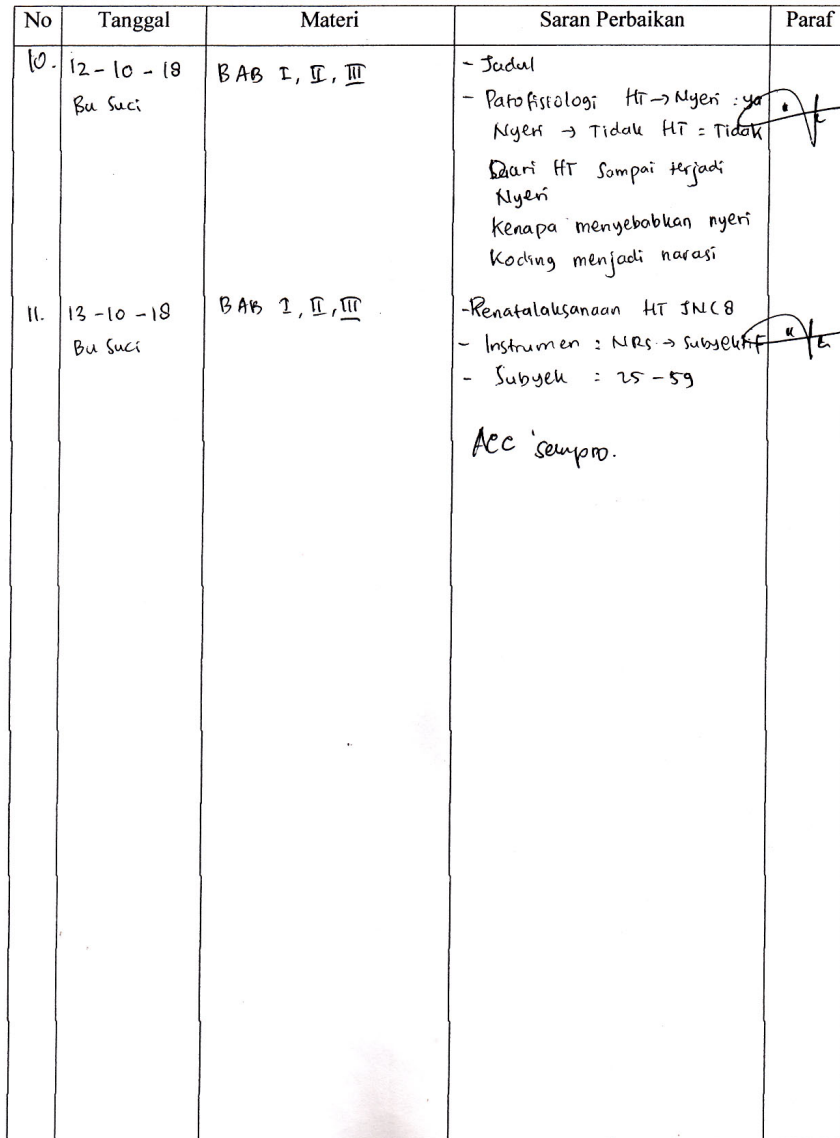 No Tanggal Materi Saran Perbaikan Paraf
10. 12-10-18 BAB I, II, III - Judul
Bu Suci - Patofisiologi HT → Nyeri : ya
Nyeri → Tidak HT = Tidak
Dari HT Sampai terjadi
Nyeri
Kenapa menyebabkan nyeri
Koding menjadi narasi
11. 13-10-18 BAB I, II, III - Penatalaksanaan HT JNC8
Bu Suci - Instrumen : NRS → Subyektif
- Subyek : 25-59
Acc sempro.